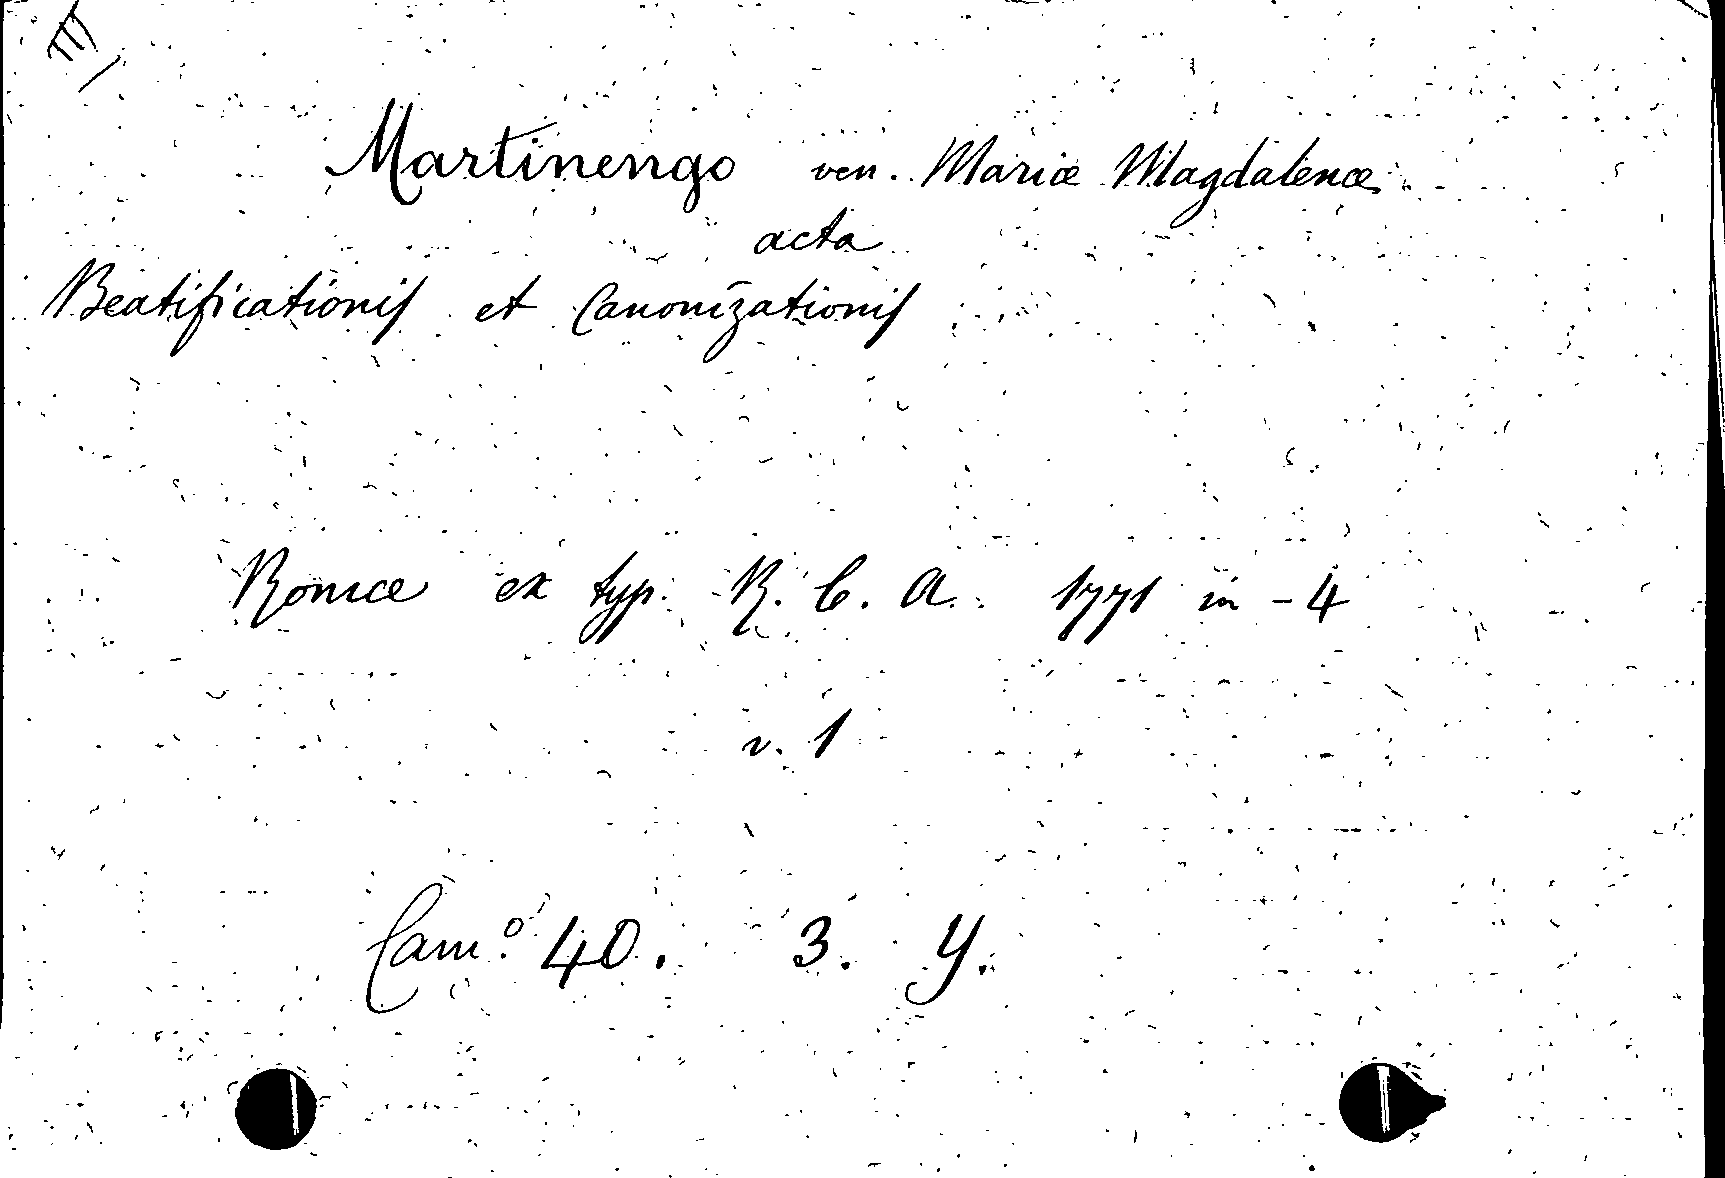 III
Martinengo ven. Mariæ Magdalenæ
acta
Beatificationis et Canonizationis
Romæ ex typ. R. C. A. 1771 in-4
v. 1
Cam.º 40. 3. Y.